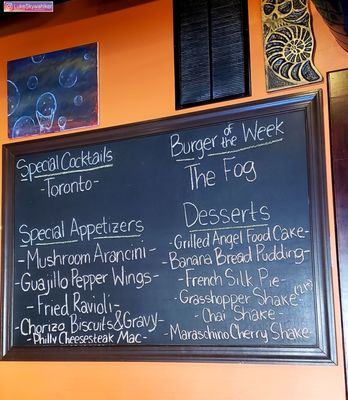 LukeSkywahiker
Special Cocktails
-Toronto-
Special Appetizers
-Mushroom Arancini-
-Guajillo Pepper Wings-
-Fried Ravioli-
-Chorizo Biscuits & Gravy-
-Philly Cheesesteak Mac-
Burger of the Week
The Fog
Desserts
-Grilled Angel Food Cake-
-Banana Bread Pudding-
-French Silk Pie-
-Grasshopper Shake-
-Chai Shake-
-Maraschino Cherry Shake-